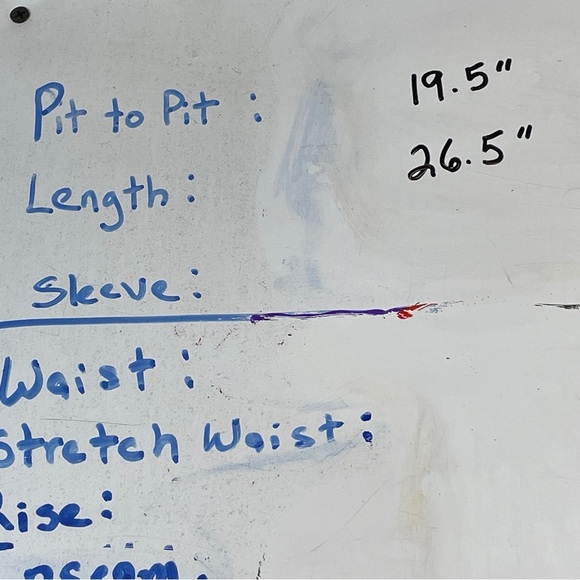 Pit to Pit : 19.5"
Length : 26.5"
Sleeve :
Waist :
Stretch Waist :
Rise :
Inseam :